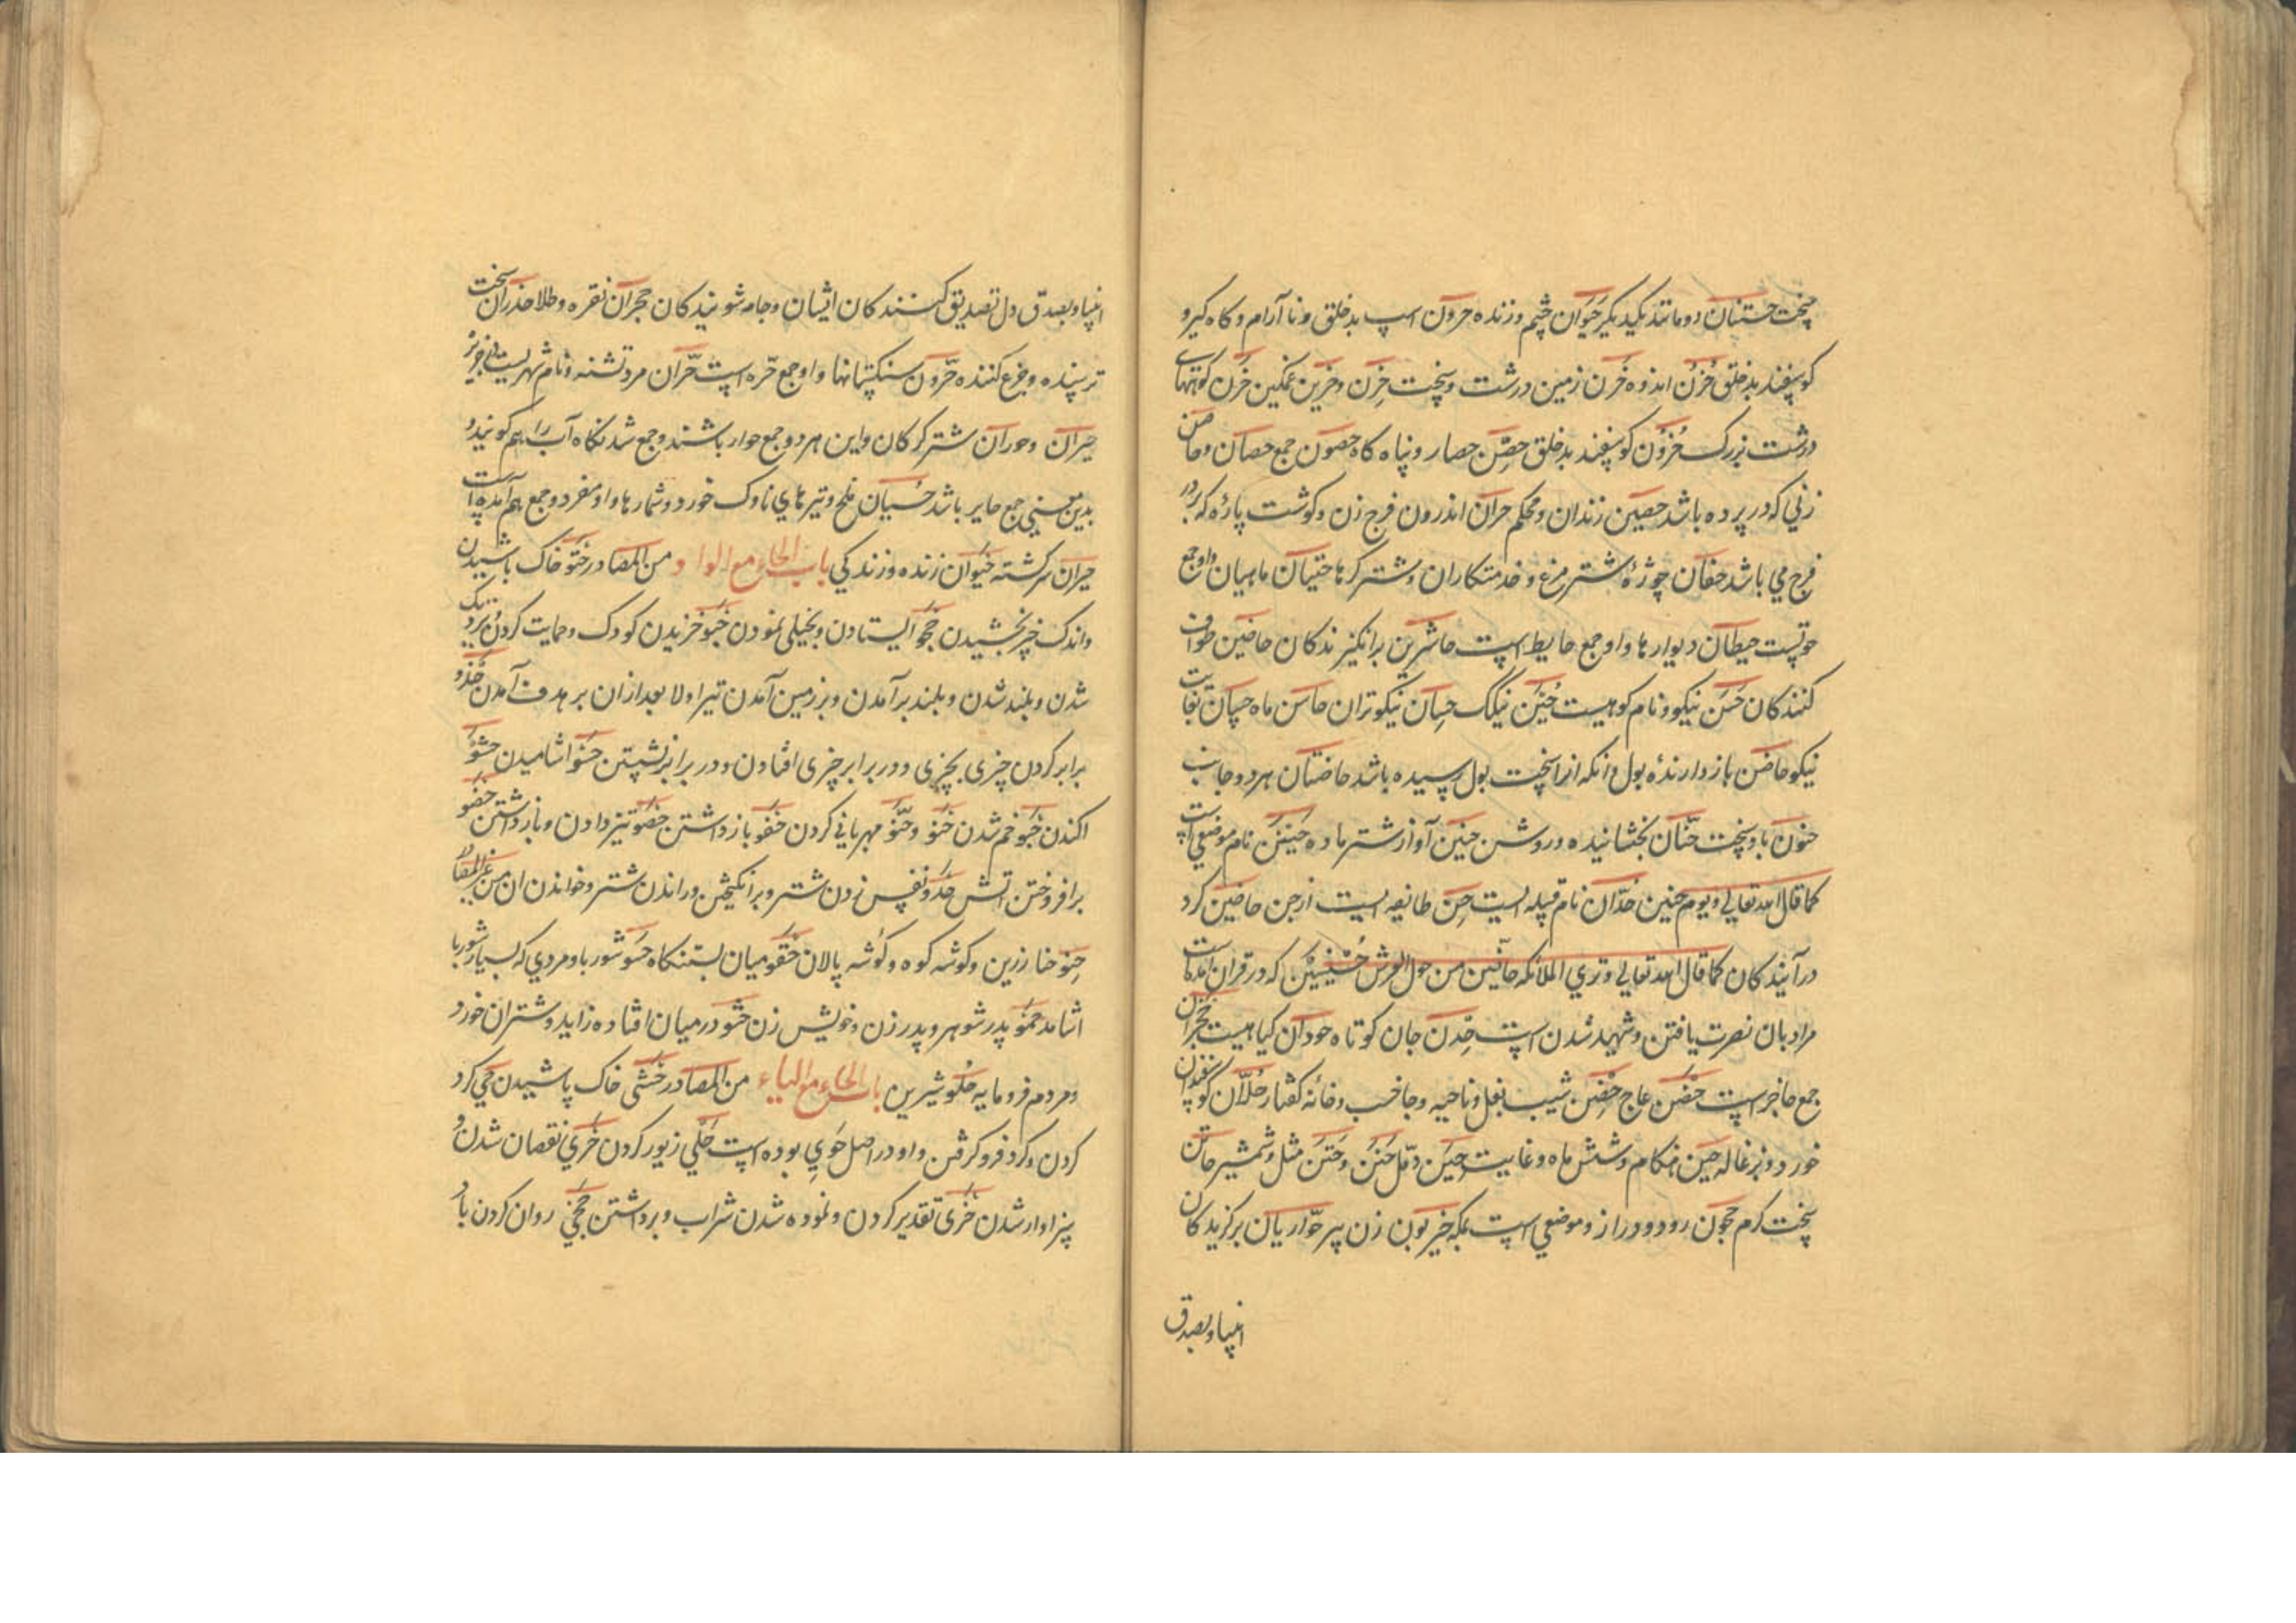 سخت حتنان دو مانند یکدیکر حیوان چشم و زنده حرون اسپ بدخلق و نا آرام و کاه کیر و
کوسپفند بدخلق حُزن اندوه حَزن زمین درشت و سخت حزن و حزین غمکین حزن کوههای
درشت بزرک حُزون کوسفند بدخلق حِصن حصار و پناه کاه حصون جمع حصان و حاصن
زنی که در پرده باشد حصین زندان و محکم حران اندرون فرج زن و کوشت پاره که بر در
فرج می باشد حفان چوزهٔ شتر مرغ و خدمتکاران و شتر کرها حیتان ماهیان و او جمع
حوتست حیطان دیوارها و او جمع حایط است حاشرین برانکیزندکان حافین طواف
کنندکان حسن نیکو و نام کوهیست حُسَین نیکک حِسان نیکوتران حاسن ماه حسان بغایت
نیکو حاقن باز دارندهٔ بول و انکه از سخت بول رسیده باشد حاضنان هر دو جانب
حنون باد سخت حنّان بخشاینده و روشن حنین آواز شتر ماده حُنین نام موضعی است
کما قال الله تعالی و یوم حنین حُدّان نام قبیله ایست حِن طائفه ایست از جن حافین کرد
در آیندکان کما قال الله تعالی و تری الملائکه حافین من حول العرش حُسنیین که در قران آمده است
مراد بان نصرت یافتن و شهید شدن است جان کوتاه حوذان کیاهیست حجران
جمع حاجر است حضن عاج حِضن شیب بغل و ناحیه و جا خسب و خانه کفتار حُلّان کوسفندان
خورد و بزغاله حین هنکام و شش ماه و غایت حَین و حَتن مثل و شمشیر
سخت کرم حجون رود دور دراز و موضعی است بمکه حیزبون زن پیر حوّاریان برکزیدکان
انبیا و بصدق
انبیا و بصدق دل تصدیق کنندکان ایشان و جامه شویندکان حجران نقره و طلا حذران سخت
ترسنده و جزع کننده حرّون سنکستانها و او جمع حرّه است حرّان مرد تشنه و نام شهریست
حیران و حوران شتر کرکان و این هر دو جمع حوار باشند و جمع شدنکاه آب را هم کویند و
بدین معنی جمع حایر باشد حُسبان ملخ و تیرهای ناوک خورد و شمارها و او مفرد و جمع هم آمده است
حیران سرکشته حَیَوان زنده و زندکی باب الحاء مع الواو من المصادر حثو خاک پاشیدن
و اندک چیز بخشیدن حجو ایستادن و بخیلی نمودن حبو خزیدن کودک و حمایت کردن و نزدیک
شدن و بلند شدن و بلند بر آمدن و بر زمین آمدن تیر اولا بعد از ان بر هدف آمدن حذو
برابر کردن چیزی بچیزی و در برابر چیزی افتادن و در برابر نشستن حسو اشامیدن حشو
اکندن حنو خم شدن حَنو و حُنّو مهربانی کردن حقو باز داشتن تیز دادن و باز داشتن حضو
برافروختن اتش حَدو نفس زدن شتر و برانکیختن و راندن شتر و خواندن ان من غیر المصادر
حِنو حنا زرین و کوشه کوه و کوشه پالان حقو میان بستنکاه حسو شوربا و مردی که بسیار شوربا
اشامد حمو پدر شوهر و پدر زن و خویش زن حشو در میان افتاده زاید و شتران خورد
و مردم فرومایه حُلو شیرین باب الحاء مع الیاء من المصادر حَثی خاک پاشیدن حَی کرد
کردن و کرد فرو کرفتن و او در اصل حَوی بوده است حَلی زیور کردن حَری نقصان شدن و
سزاوار شدن حَزی تقدیر کردن و نموده شدن شراب و برداشتن روان کردن باد